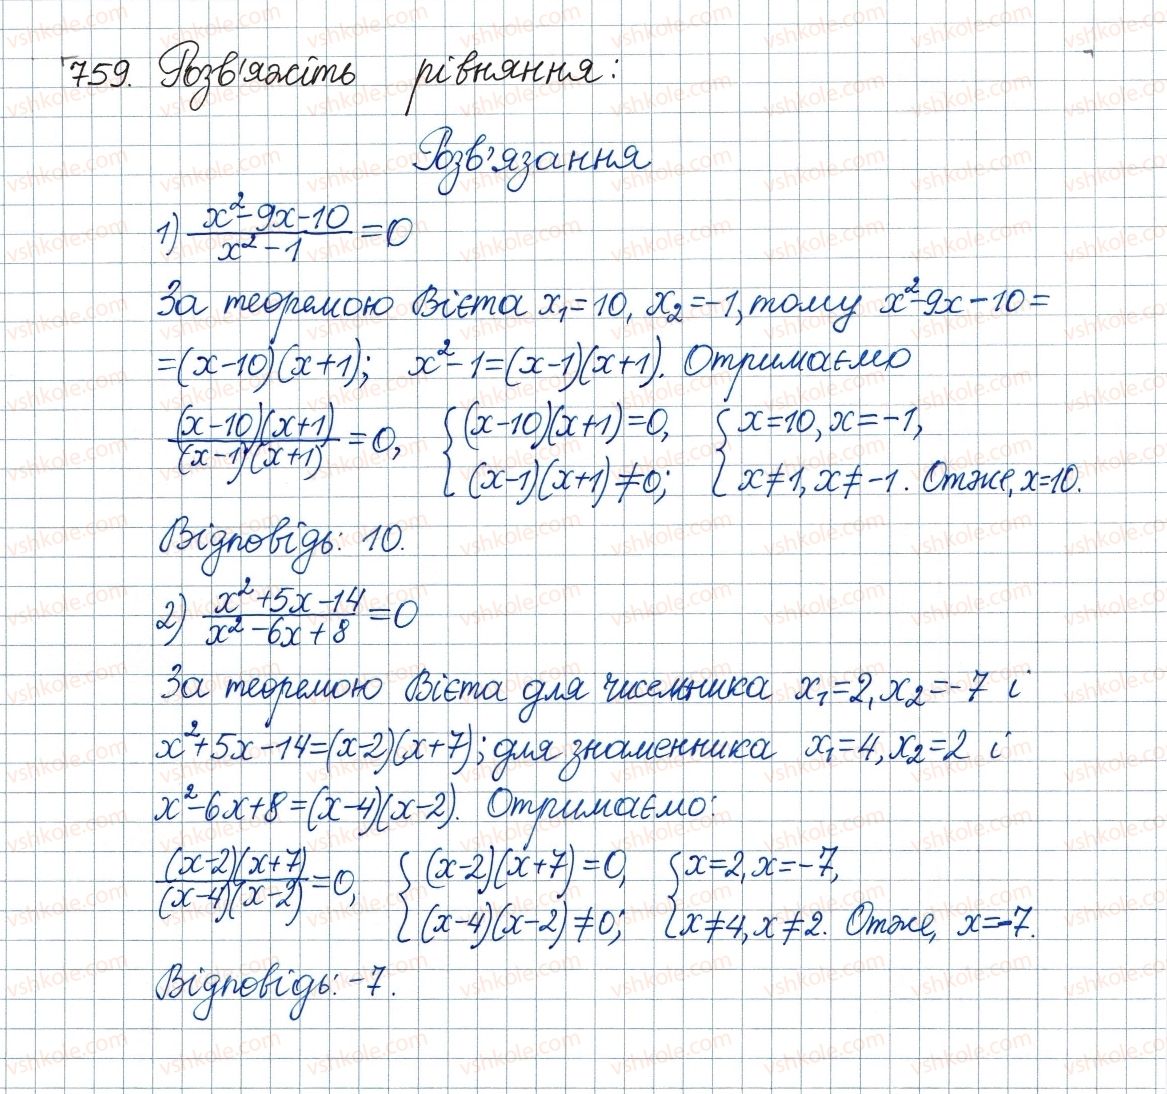 759. Розв'яжіть рівняння:
Розв'язання
1) (x²-9x-10)/(x²-1)=0
За теоремою Вієта x₁=10, x₂=-1, тому x²-9x-10=
=(x-10)(x+1); x²-1=(x-1)(x+1). Отримаємо
((x-10)(x+1))/((x-1)(x+1))=0, { (x-10)(x+1)=0, (x-1)(x+1)≠0; { x=10, x=-1, x≠1, x≠-1. Отже, x=10.
Відповідь: 10.
2) (x²+5x-14)/(x²-6x+8)=0
За теоремою Вієта для чисельника x₁=2, x₂=-7 і
x²+5x-14=(x-2)(x+7); для знаменника x₁=4, x₂=2 і
x²-6x+8=(x-4)(x-2). Отримаємо:
((x-2)(x+7))/((x-4)(x-2))=0, { (x-2)(x+7)=0, (x-4)(x-2)≠0; { x=2, x=-7, x≠4, x≠2. Отже, x=-7.
Відповідь: -7.
vshkole.com